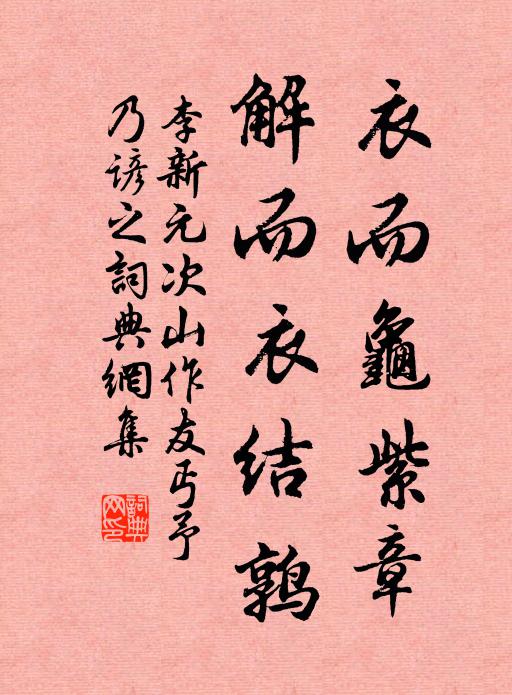 衣而龜紫章
解而衣结鶉
李新元次山作友丐予
乃谚之詞典網集
詞典网印